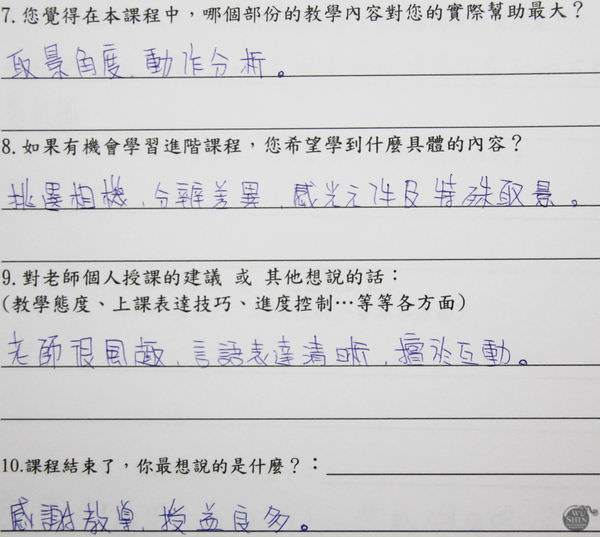 7. 您覺得在本課程中，哪個部份的教學內容對您的實際幫助最大？
取景角度、動作分析。
8. 如果有機會學習進階課程，您希望學到什麼具體的內容？
挑選相機、分辨差異、感光元件及特殊取景。
9. 對老師個人授課的建議 或 其他想說的話：
(教學態度、上課表達技巧、進度控制…等等各方面)
老師很風趣、言語表達清晰、擅於互動。
10.課程結束了，你最想說的是什麼？：
感謝教導、授益良多。
WE SHIN